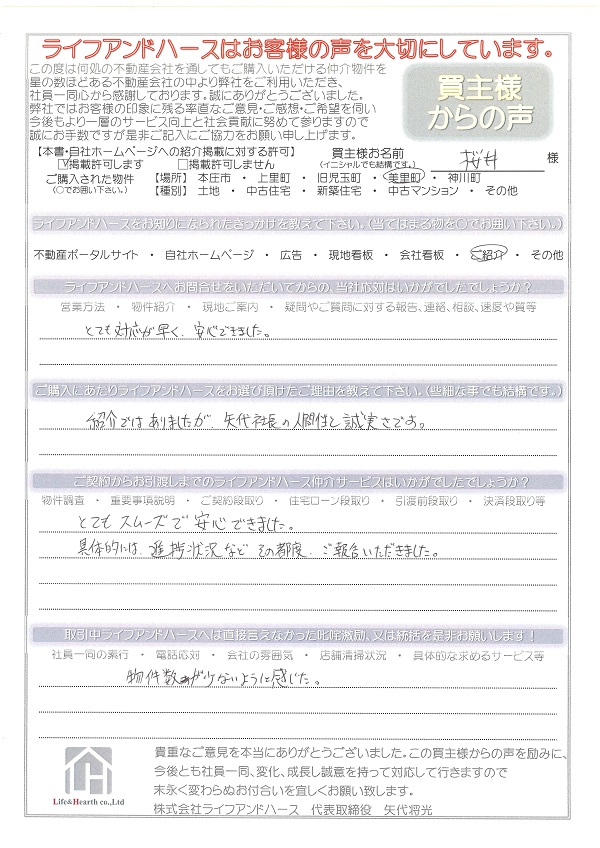 ライフアンドハースはお客様の声を大切にしています。
この度は何処の不動産会社を通してもご購入いただける仲介物件を
星の数ほどある不動産会社の中より弊社をご利用いただき、
社員一同心から感謝しております。誠にありがとうございました。
弊社ではお客様の印象に残る率直なご意見・ご感想・ご希望を伺い
今後もより一層のサービス向上と社会貢献に努めて参りますので
誠にお手数ですが是非ご記入にご協力をお願い申し上げます。
買主様
からの声
【本書・自社ホームページへの紹介掲載に対する許可】
☑掲載許可します □掲載許可しません
買主様お名前
(イニシャルでも結構です。)
桜井 様
ご購入された物件
(○でお囲い下さい。)
【場所】 本庄市 ・ 上里町 ・ 旧児玉町 ・ 美里町 ・ 神川町
【種別】 土地 ・ 中古住宅 ・ 新築住宅 ・ 中古マンション ・ その他
ライフアンドハースをお知りになられたきっかけを教えて下さい。(当てはまる物を○でお囲い下さい。)
不動産ポータルサイト ・ 自社ホームページ ・ 広告 ・ 現地看板 ・ 会社看板 ・ ご紹介 ・ その他
ライフアンドハースへお問合せをいただいてからの、当社応対はいかがでしたでしょうか?
営業方法 ・ 物件紹介 ・ 現地ご案内 ・ 疑問やご質問に対する報告、連絡、相談、速度や質等
とても対応が早く、安心できました。
ご購入にあたりライフアンドハースをお選び頂けたご理由を教えて下さい。(些細な事でも結構です。)
紹介ではありましたが、矢代社長の人間性と誠実さです。
ご契約からお引渡しまでのライフアンドハース仲介サービスはいかがでしたでしょうか?
物件調査 ・ 重要事項説明 ・ ご契約段取り ・ 住宅ローン段取り ・ 引渡前段取り ・ 決済段取り等
とてもスムーズで安心できました。
具体的には、進捗状況など その都度、ご報告いただきました。
取引中ライフアンドハースへは直接言えなかった叱咤激励、又は統括を是非お願いします!
社員一同の素行 ・ 電話応対 ・ 会社の雰囲気 ・ 店舗清掃状況 ・ 具体的な求めるサービス等
物件数が少ないように感じた。
Life&Hearth co.,Ltd
貴重なご意見を本当にありがとうございました。この買主様からの声を励みに、
今後とも社員一同、変化、成長し誠意を持って対応して行きますので
末永く変わらぬお付合いを宜しくお願い致します。
株式会社ライフアンドハース 代表取締役 矢代将光